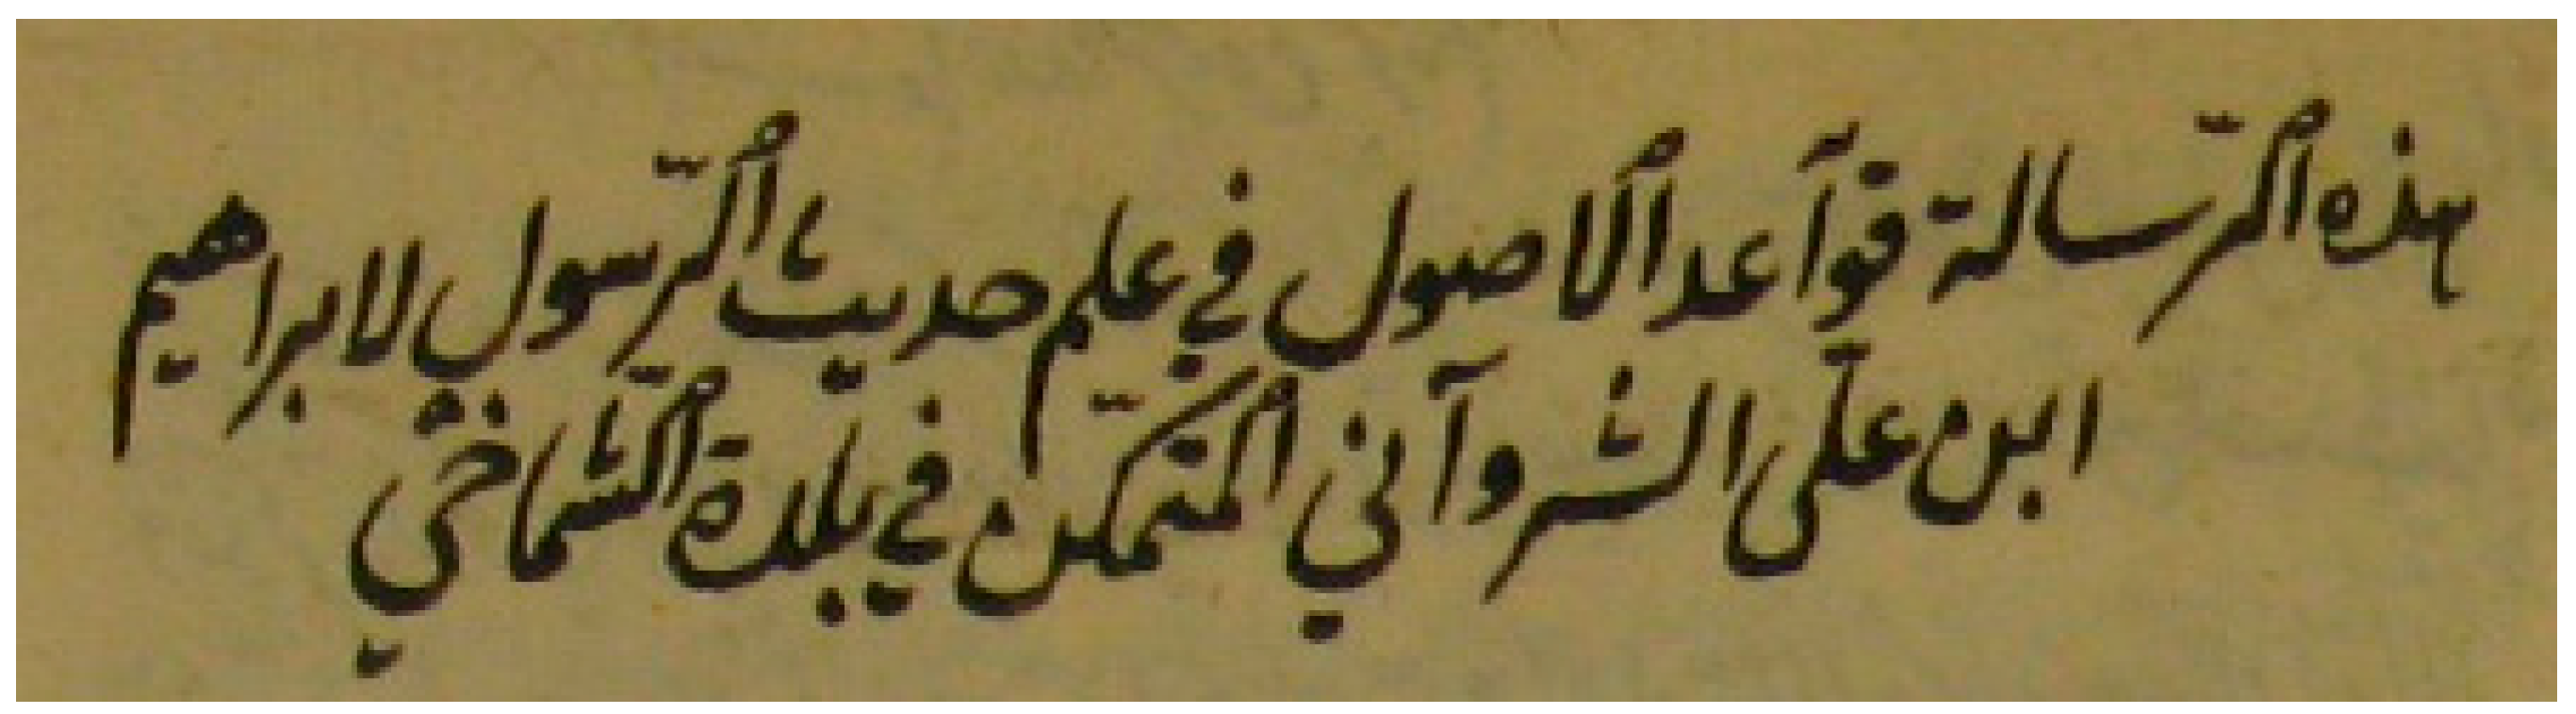 هذه ٱلرّسالة قوآعد ٱلاصول في علم حديث ٱلرّسول لابراهيم
ابن علّى الشروآني ٱلمتمكّن في بلدة ٱلشّماخي